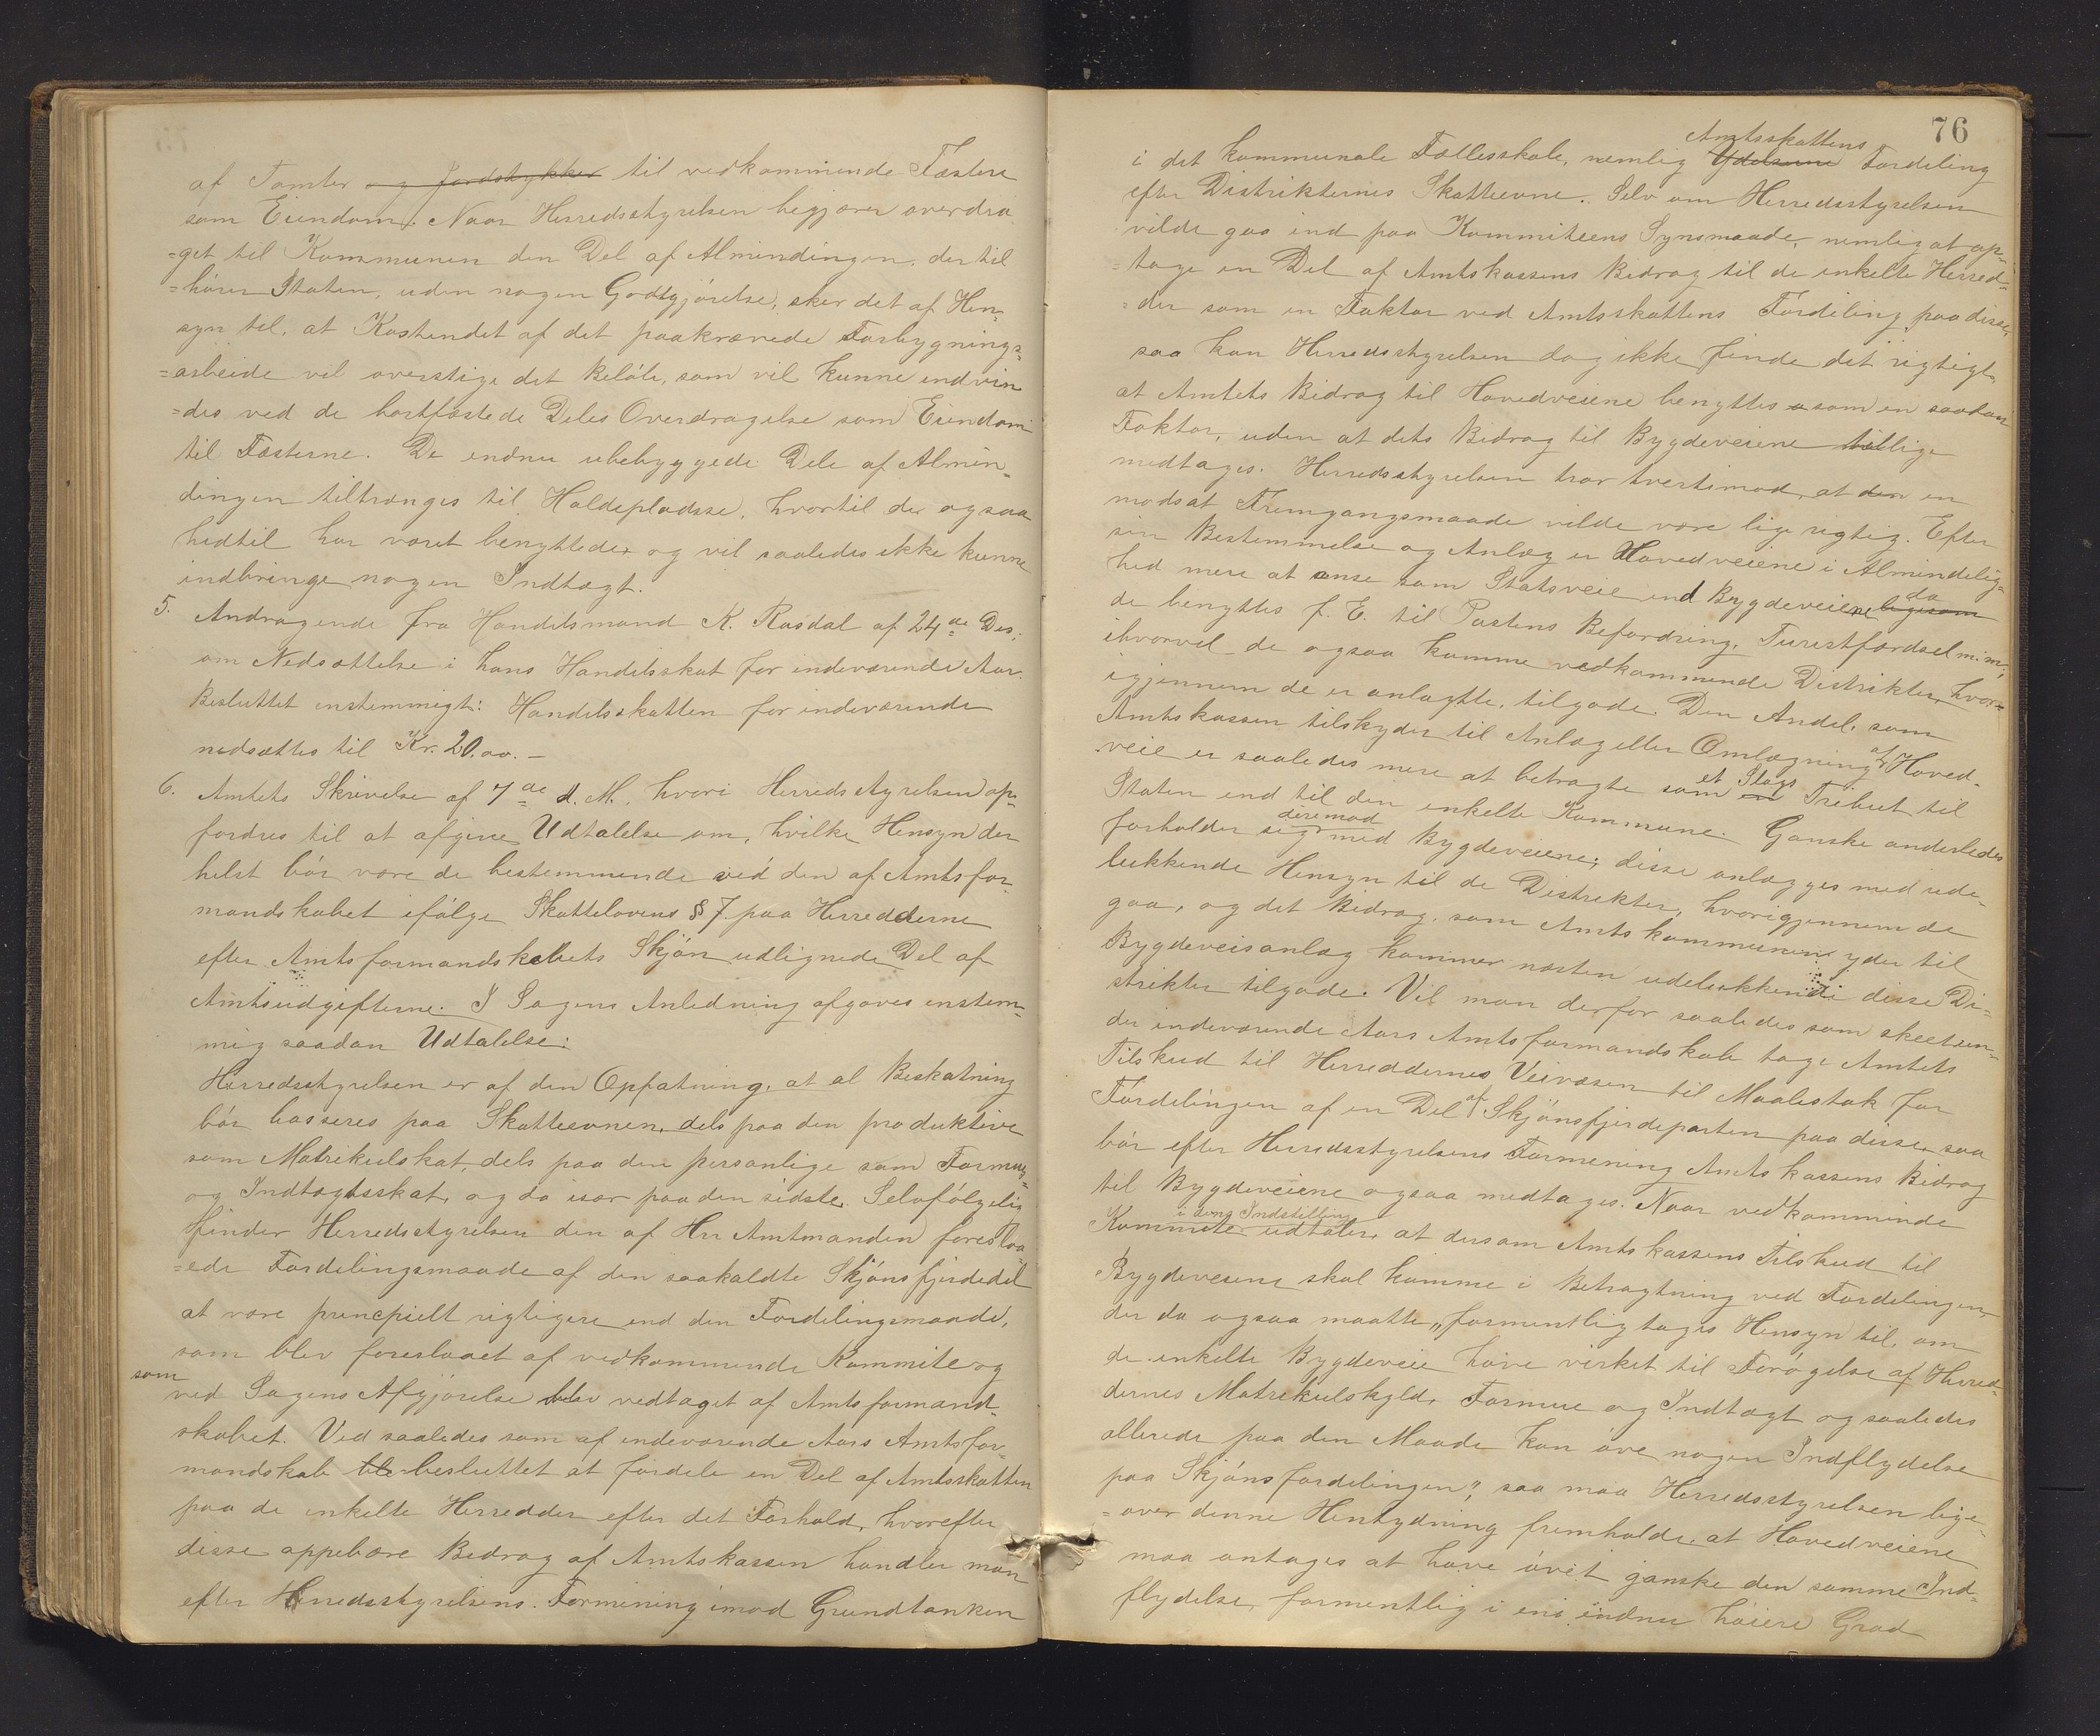 af Tomter og Jordstykker til vedkommende Fæstere
som Eiendom. Naar Herredsstyrelsen begjærer overdra
=get til Kommunen den Del af Almindingen, der til
=hører Staten, uden nogen Godtgjørelse, sker det af Hen-
syn til, at Kostendet af det paakrævede Forbygnings=
=arbeide vil overstige det Beløb, som vil kunne indvin
=des ved de bortfæstede Deles Overdragelse som Eiendom
til Fæsterne. De endnu ubebyggede Dele af Almin-
dingen tiltrænges til Holdepladse, hvortil de ogsaa
hidtil har været benyttede, og vil saaledes ikke kunne
indbringe nogen Indtægt.
5. Andragende fra Handelsmand K. Rasdal af 24de Des:
om Nedsættelse i hans Handelsskat for indeværende Aar.
Besluttet enstemmigt: Handelsskatten for indeværende
nedsættes til Kr. 20,00. –
6. Amtets Skrivelse af 7de d. M., hvori Herredsstyrelsen op-
fordres til at afgive Udtalelse om, hvilke Hensyn der
helst bør være de bestemmende ved den af Amtsfor-
mandskabet ifølge Skattelovens § 7 paa Herredderne
efter Amtsformandskabets Skjøn udlignede Del af
Amtsudgifterne. I Sagens Anledning afgaves enstem-
mig saadan Udtalelse:
Herredsstyrelsen er af den Opfatning, at al Beskatning
bør basseres paa Skatteevnen, dels paa den produktive
som Matrikulskat, dels paa den personlige som Formues-
og Indtægtsskat, og da især paa den sidste. Selvfølgelig
finder Herredsstyrelsen den af Hr Amtmanden foreslaa
=ede Fordelingsmaade af den saakaldte Skjønsfjerdedel
at være principielt rigtigere end den Fordelingsmaade,
som blev foreslaaet af vedkommende Kommite og
som
ved Sagens Afgjørelse blev vedtaget af Amtsformand-
skabet. Ved saaledes som af indeværende Aars Amtsfor-
mandskab blev besluttet at fordele en Del af Amtsskatten
paa de enkelte Herredder efter det Forhold, hvorefter
disse oppebære Bidrag af Amtskassen handler man
efter Herredsstyrelsens Formening imod Grundtanken
76
Amtsskattens
i det kommunale Fællesskab, nemlig Ydelserne Fordeling
efter Distrikternes Skatteevne. Selv om Herredsstyrelsen
vilde gaa ind paa Kommiteens Synsmaade, nemlig at op-
=tage en Del af Amtskassens Bidrag til de enkelte Herred-
=der som en Faktor ved Amtsskattens Fordeling paa disse,
saa kan Herredsstyrelsen dog ikke finde det rigtigt,
at Amtets Bidrag til Hovedveiene benyttes som en saadan
Faktor, uden at dets Bidrag til Bygdeveiene tillige
medtages. Herredsstyrelsen tror tvertimod, at den en
modsat Fremgangsmaade vilde være lige rigtig. Efter
sin Bestemmelse og Anlæg er Hovedveiene i Almindelig-
da
hed mere at anse som Statsveie end Bygdeveiene ligesom
de benyttes f. E. til Postens Befordring, Turistfærdsel m. m.,
ihvorvel de ogsaa komme vedkommende Distrikter, hvor-
igjennem de er anlagte, tilgode. Den Andel, som
Amtskassen tilskyder til Anlæg eller Omlægning af Hoved-
et Slags
veie er saaledes mere at betragte som en Tribut til
Staten end til den enkelte Kommune. Ganske anderledes
derimod
forholder sig med Bygdeveiene; disse anlægges med ude-
lukkende Hensyn til de Distrikter, hvorigjennem de
gaa, og det Bidrag, som Amtskommunen yder til
Bygdeveisanlæg kommer næsten udelukkende disse Di-
strikter tilgode. Vil man derfor saaledes som skeet un-
der indeværende Aars Amtsformandskab tage Amtets
Tilskud til Herreddernes Veivæsen til Maalestok for
Fordelingen af en Del af Skjønsfjerdeparten paa disse, saa
bør efter Herredsstyrelsens Formening Amtskassens Bidrag
til Bygdeveiene ogsaa medtages. Naar vedkommende
i dens Indstilling
Kommite udtaler, at dersom Amtskassens Tilskud til
Bygdeveiene skal komme i Betragtning ved Fordelingen,
der da ogsaa maatte „formentlig tages Hensyn til, om
de enkelte Bygdeveie have virket til Forøgelse af Herred-
dernes Matrikulskyld, Formue og Indtægt og saaledes
allerede paa den Maade kan øve nogen Indflydelse
paa Skjønsfordelingen", saa maa Herredsstyrelsen lige-
=over denne Hentydning fremholde, at Hovedveiene
maa antages at have øvet ganske den samme Ind-
flydelse, formentlig i end endnu høiere Grad